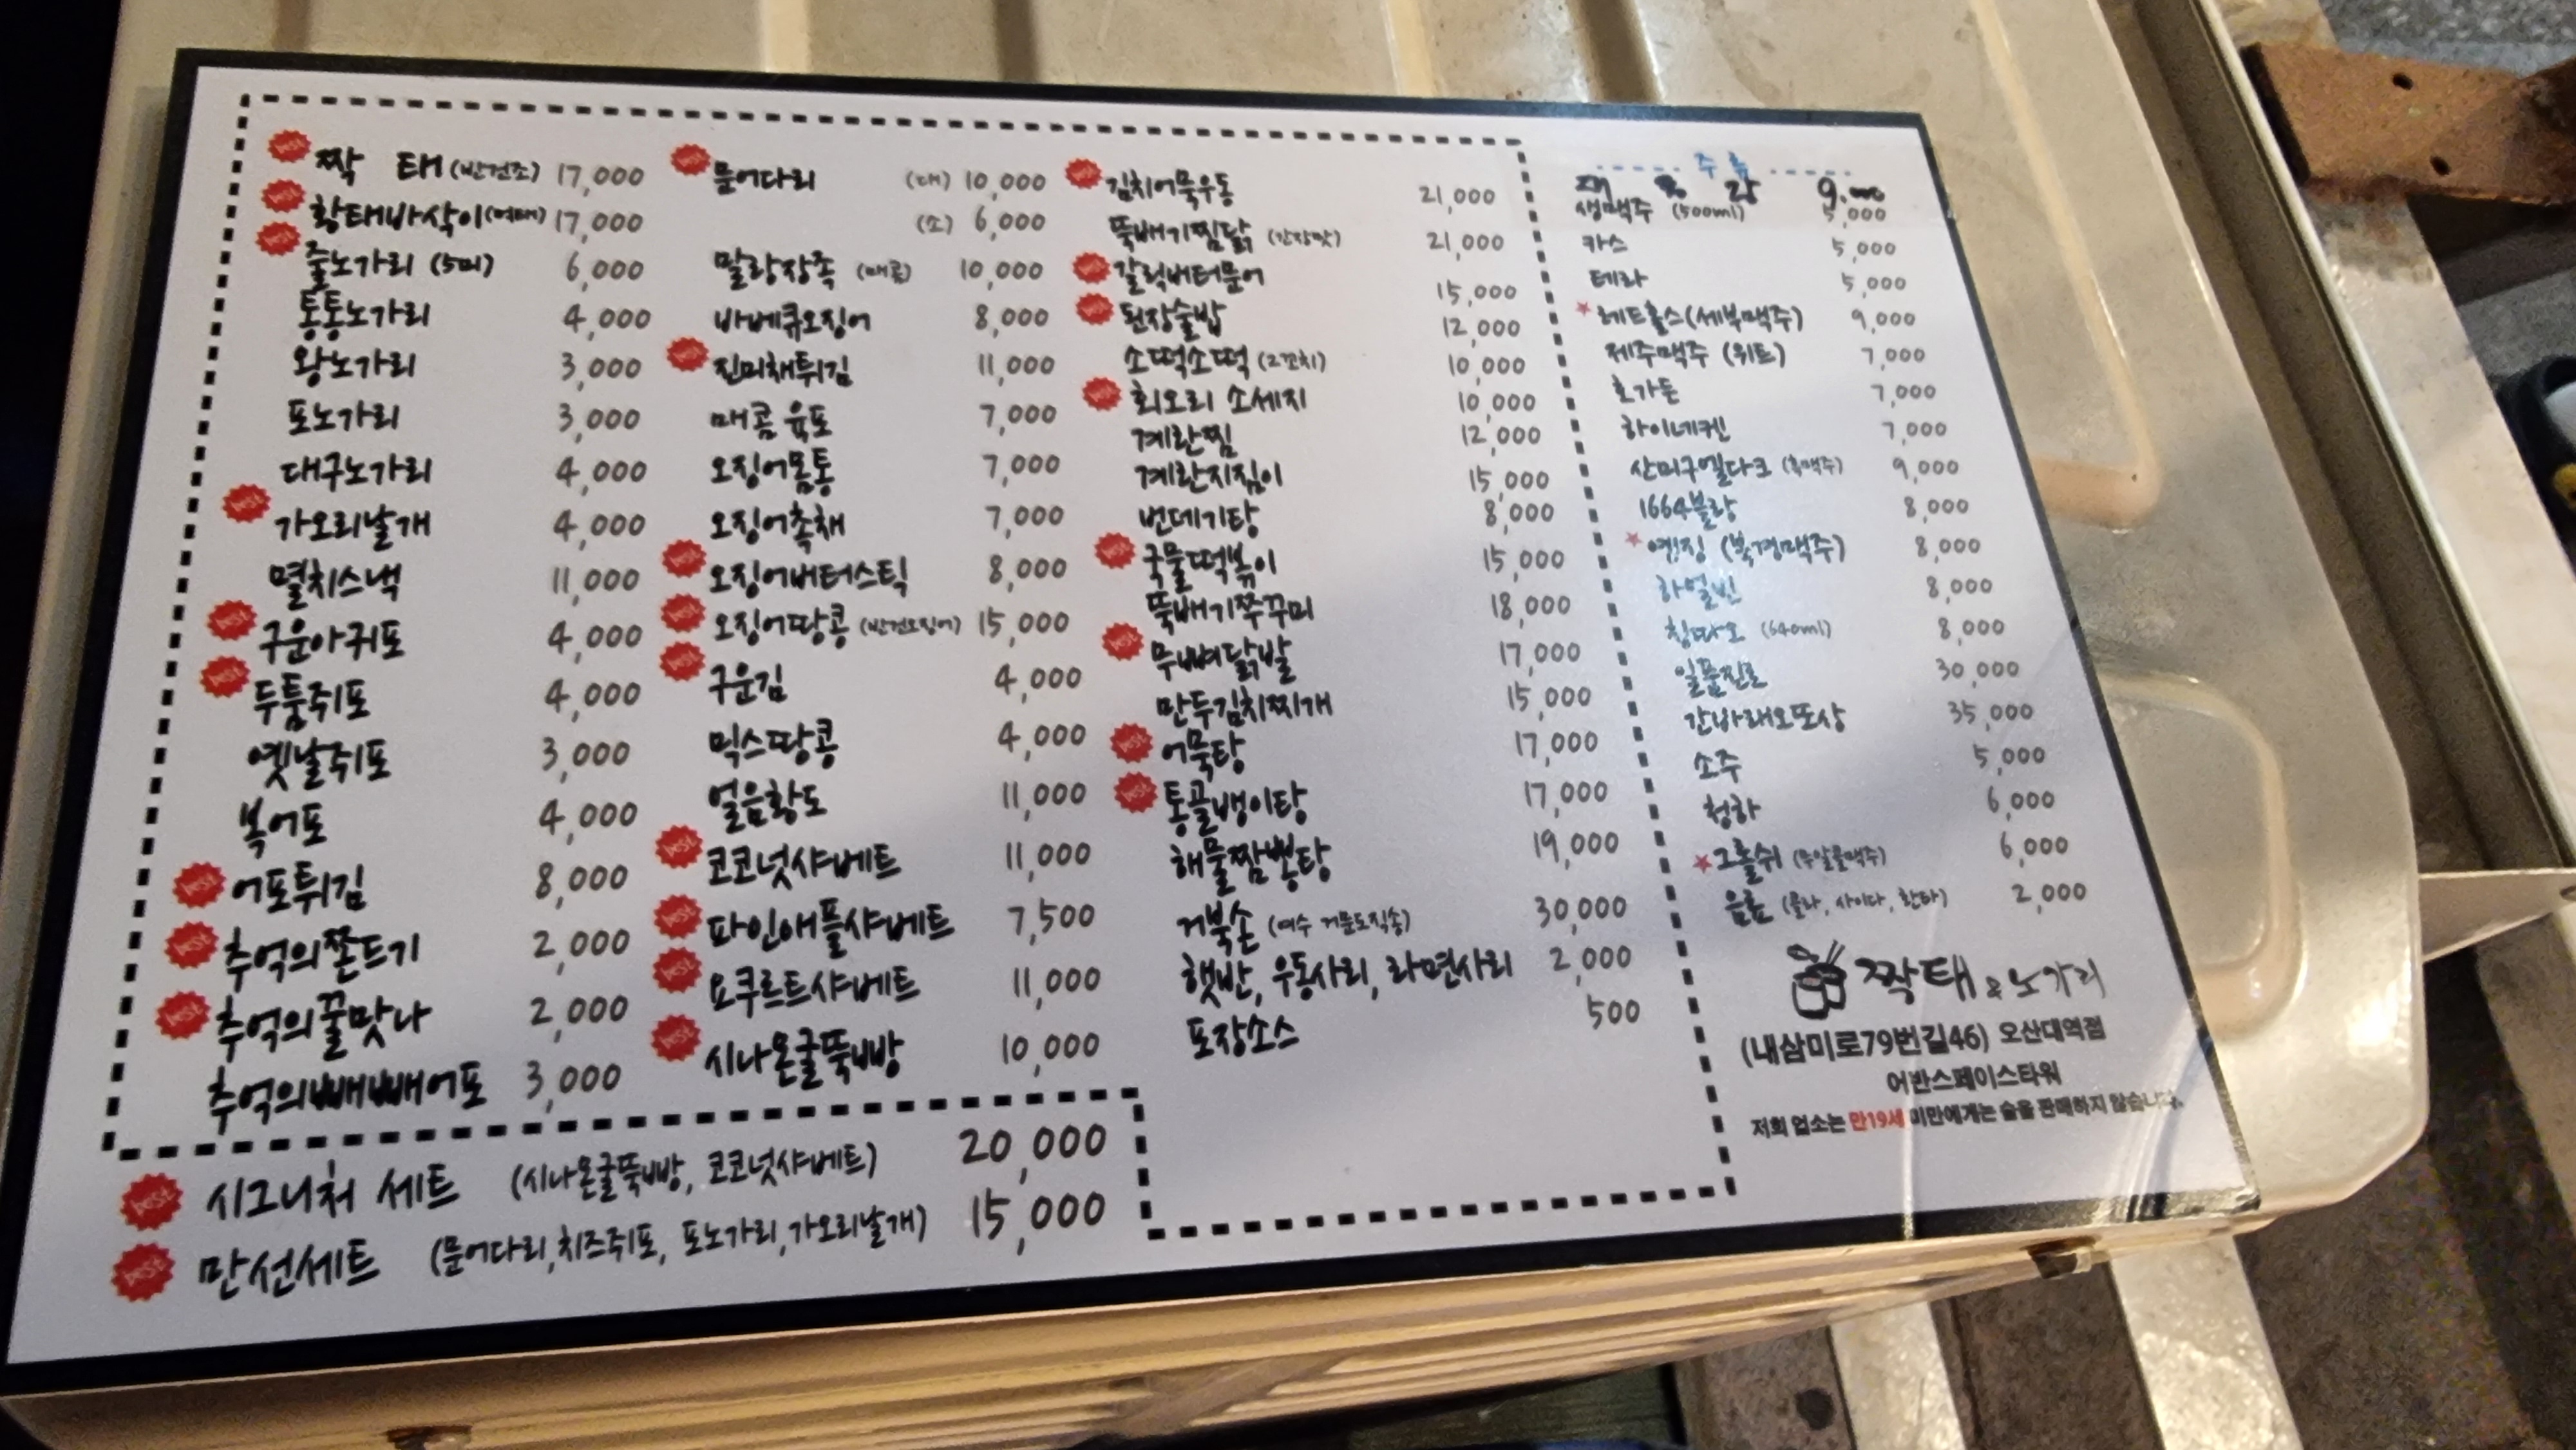 짝 태 (반건조) 17,000
황태바삭이(먹태) 17,000
줄노가리 (5미) 6,000
통통노가리 4,000
왕노가리 3,000
포노가리 3,000
대구노가리 4,000
가오리날개 4,000
멸치스낵 11,000
구운아귀포 4,000
두툼쥐포 4,000
옛날쥐포 3,000
복어포 4,000
어포튀김 8,000
추억의쫀드기 2,000
추억의꿀맛나 2,000
추억의빼빼어포 3,000
문어다리 (대) 10,000
(소) 6,000
말랑장족 (매콤) 10,000
바베큐오징어 8,000
진미채튀김 11,000
매콤 육포 7,000
오징어몸통 7,000
오징어촉채 7,000
오징어버터스틱 8,000
오징어땅콩 (반건오징어) 15,000
구운김 4,000
믹스땅콩 4,000
얼음황도 11,000
코코넛샤베트 11,000
파인애플샤베트 7,500
요쿠르트샤베트 11,000
시나몬굴뚝빵 10,000
김치어묵우동 21,000
뚝배기찜닭 (간장맛) 21,000
갈릭버터문어 15,000
된장술밥 12,000
소떡소떡 (2꼬치) 10,000
회오리 소세지 10,000
계란찜 12,000
계란지짐이 15,000
번데기탕 8,000
국물떡볶이 15,000
뚝배기쭈꾸미 18,000
무뼈닭발 17,000
만두김치찌개 15,000
어묵탕 17,000
통골뱅이탕 17,000
해물짬뽕탕 19,000
거북손 (여수 거문도직송) 30,000
햇반, 우동사리, 라면사리 2,000
포장소스 500
시그니처 세트 (시나몬굴뚝빵, 코코넛샤베트) 20,000
만선세트 (문어다리,치즈쥐포, 포노가리,가오리날개) 15,000
주 류
생맥주 (500ml) 5,000
카스 5,000
테라 5,000
레드홀스(세부맥주) 9,000
제주맥주 (위트) 7,000
호가든 7,000
하이네켄 7,000
산미구엘다크 (흑맥주) 9,000
1664블랑 8,000
옌징 (북경맥주) 8,000
하얼빈 8,000
칭따오 (640ml) 8,000
일품진로 30,000
간바레오또상 35,000
소주 5,000
청하 6,000
그롤쉬 (무알콜맥주) 6,000
음료 (콜라, 사이다, 환타) 2,000
짝태 & 노가리
(내삼미로79번길46) 오산대역점
어반스페이스타워
저희 업소는 만19세 미만에게는 술을 판매하지 않습니다.